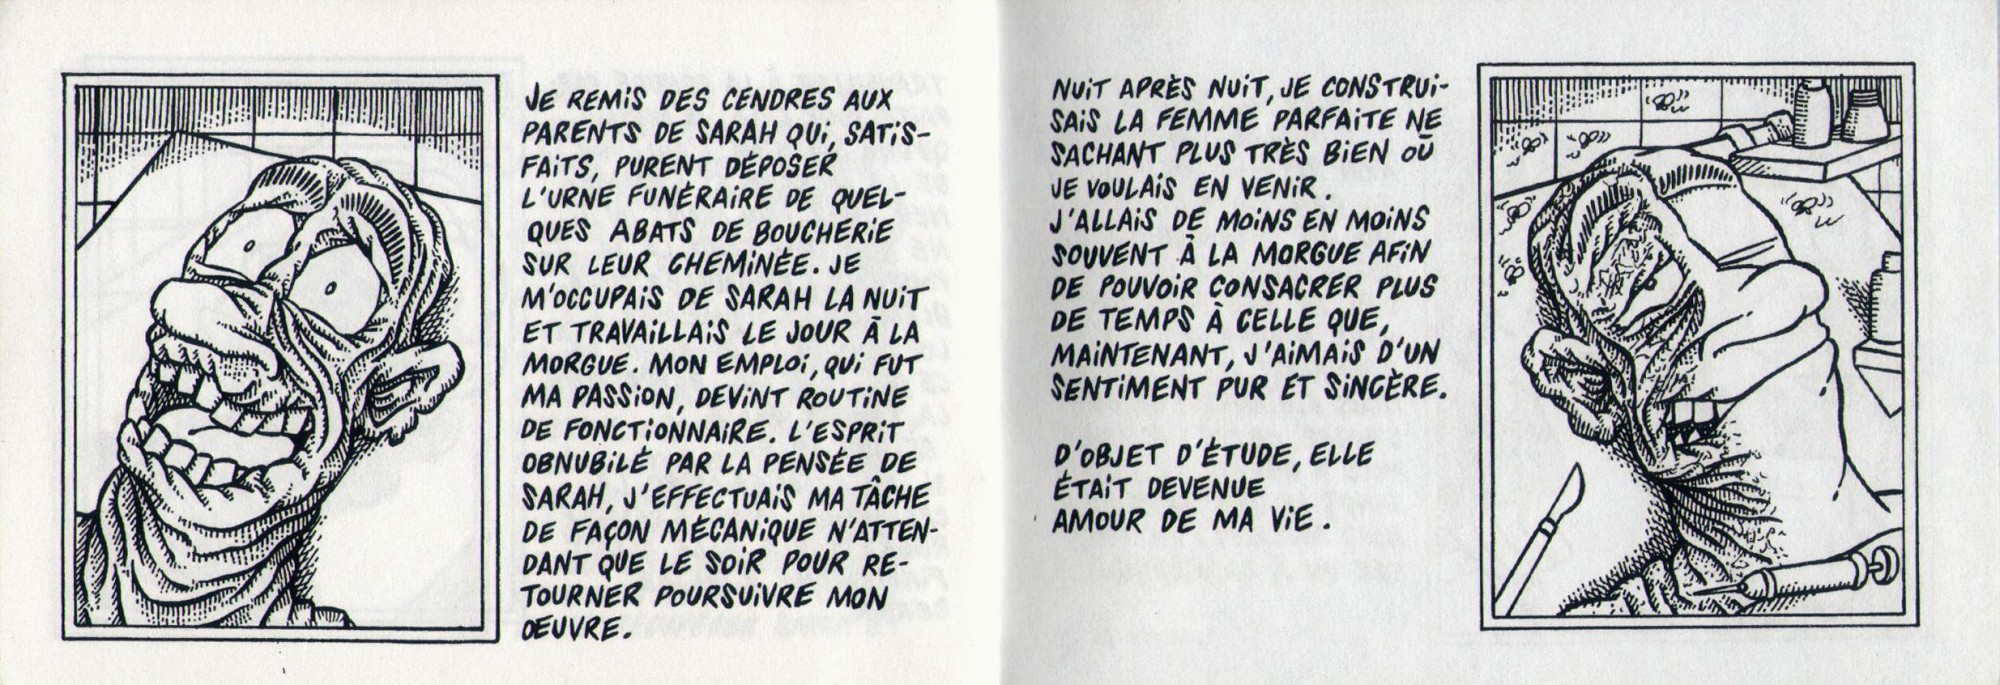 JE REMIS DES CENDRES AUX
PARENTS DE SARAH QUI, SATIS-
FAITS, PURENT DÉPOSER
L'URNE FUNÉRAIRE DE QUEL-
QUES ABATS DE BOUCHERIE
SUR LEUR CHEMINÉE. JE
M'OCCUPAIS DE SARAH LA NUIT
ET TRAVAILLAIS LE JOUR À LA
MORGUE. MON EMPLOI, QUI FUT
MA PASSION, DEVINT ROUTINE
DE FONCTIONNAIRE. L'ESPRIT
OBNUBILÉ PAR LA PENSÉE DE
SARAH, J'EFFECTUAIS MA TÂCHE
DE FAÇON MÉCANIQUE N'ATTEN-
DANT QUE LE SOIR POUR RE-
TOURNER POURSUIVRE MON
OEUVRE.
NUIT APRÈS NUIT, JE CONSTRUI-
SAIS LA FEMME PARFAITE NE
SACHANT PLUS TRÈS BIEN OÙ
JE VOULAIS EN VENIR.
J'ALLAIS DE MOINS EN MOINS
SOUVENT À LA MORGUE AFIN
DE POUVOIR CONSACRER PLUS
DE TEMPS À CELLE QUE,
MAINTENANT, J'AIMAIS D'UN
SENTIMENT PUR ET SINCÈRE.
D'OBJET D'ÉTUDE, ELLE
ÉTAIT DEVENUE
AMOUR DE MA VIE.